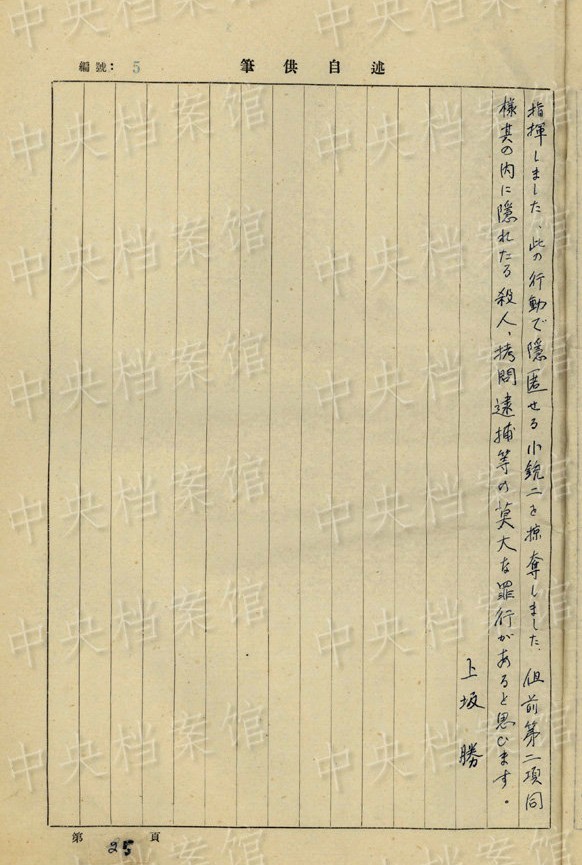 編號：5
筆供自述
指揮しました、此の行動で隠匿せる小銃二を掠奪しました、但前第二項同
様其の内に隠れたる殺人、拷問逮捕等の莫大な罪行があると思ひます。
上坂 勝
第 25 頁
中央档案馆